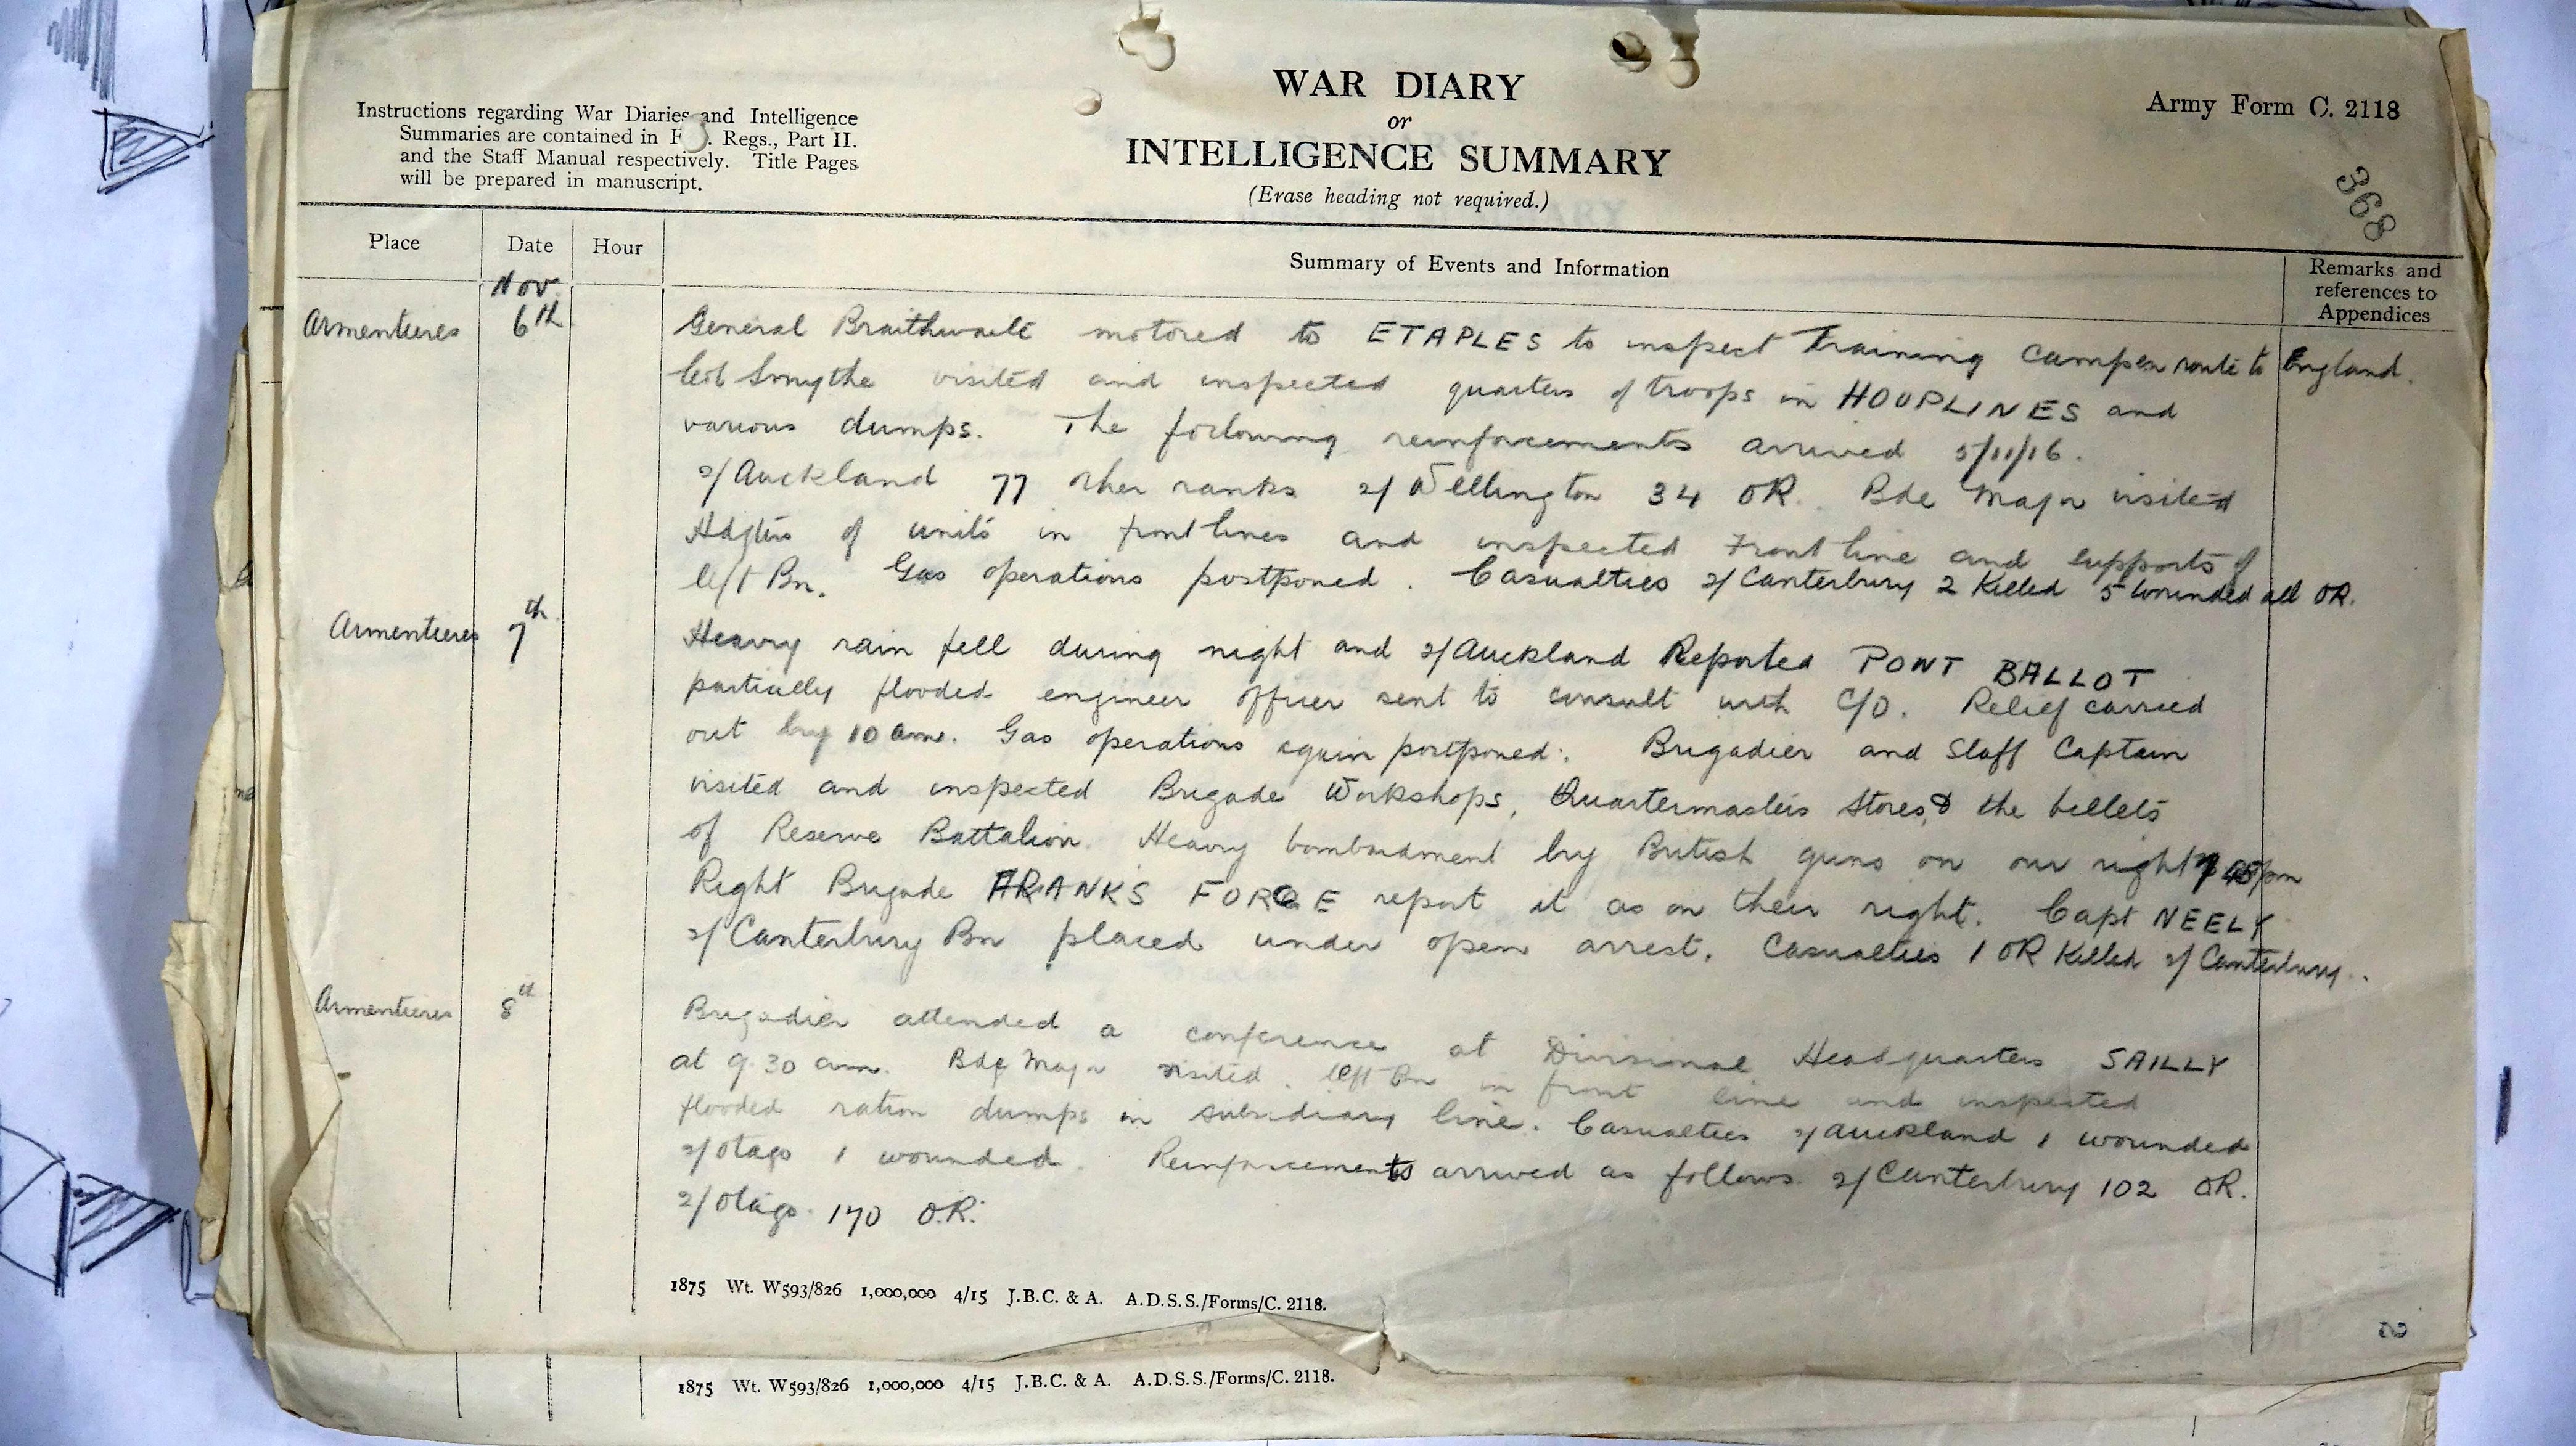 WAR DIARY
or
INTELLIGENCE SUMMARY
(Erase heading not required.)
Army Form C. 2118
368
Instructions regarding War Diaries and Intelligence
Summaries are contained in F . Regs., Part II.
and the Staff Manual respectively. Title Pages
will be prepared in manuscript.
Place Date Hour Summary of Events and Information Remarks and
references to
Appendices
Nov.
Armentieres 6th General Braithwaite motored to ETAPLES to inspect Training Camps en route to England.
Col Smythe visited and inspected quarters of troops in HOUPLINES and
various dumps. The following reinforcements arrived 5/11/16.
2/Auckland 77 other ranks 2/Wellington 34 OR. Bde Major visited
Hdqtrs of units in front lines and inspected Front line and supports of
left Bn. Gas operations postponed. Casualties 2/Canterbury 2 Killed 5 wounded all OR.
Armentieres 7th Heavy rain fell during night and 2/Auckland Reported PONT BALLOT
partially flooded engineer officer sent to consult with C/O. Relief carried
out by 10 am. Gas operations again postponed. Brigadier and Staff Captain
visited and inspected Brigade Workshops, Quartermasters Stores, & the billets
of Reserve Battalion. Heavy bombardment by British guns on our right pm
Right Brigade FRANKS FORCE report it as on their right. Capt NEELY
2/Canterbury Bn placed under open arrest. Casualties 1 OR Killed 2/Canterbury..
Armentieres 8th Brigadier attended a conference at Divisional Headquarters SAILLY
at 9.30 am. Bde Major visited. left Bn in front line and inspected
flooded ration dumps in subsidiary line. Casualties 2/Auckland 1 wounded
2/Otago 1 wounded. Reinforcements arrived as follows. 2/Canterbury 102 OR.
2/Otago. 170 O.R.
1875 Wt. W593/826 1,000,000 4/15 J.B.C. & A. A.D.S.S./Forms/C. 2118.
1875 Wt. W593/826 1,000,000 4/15 J.B.C. & A. A.D.S.S./Forms/C. 2118.